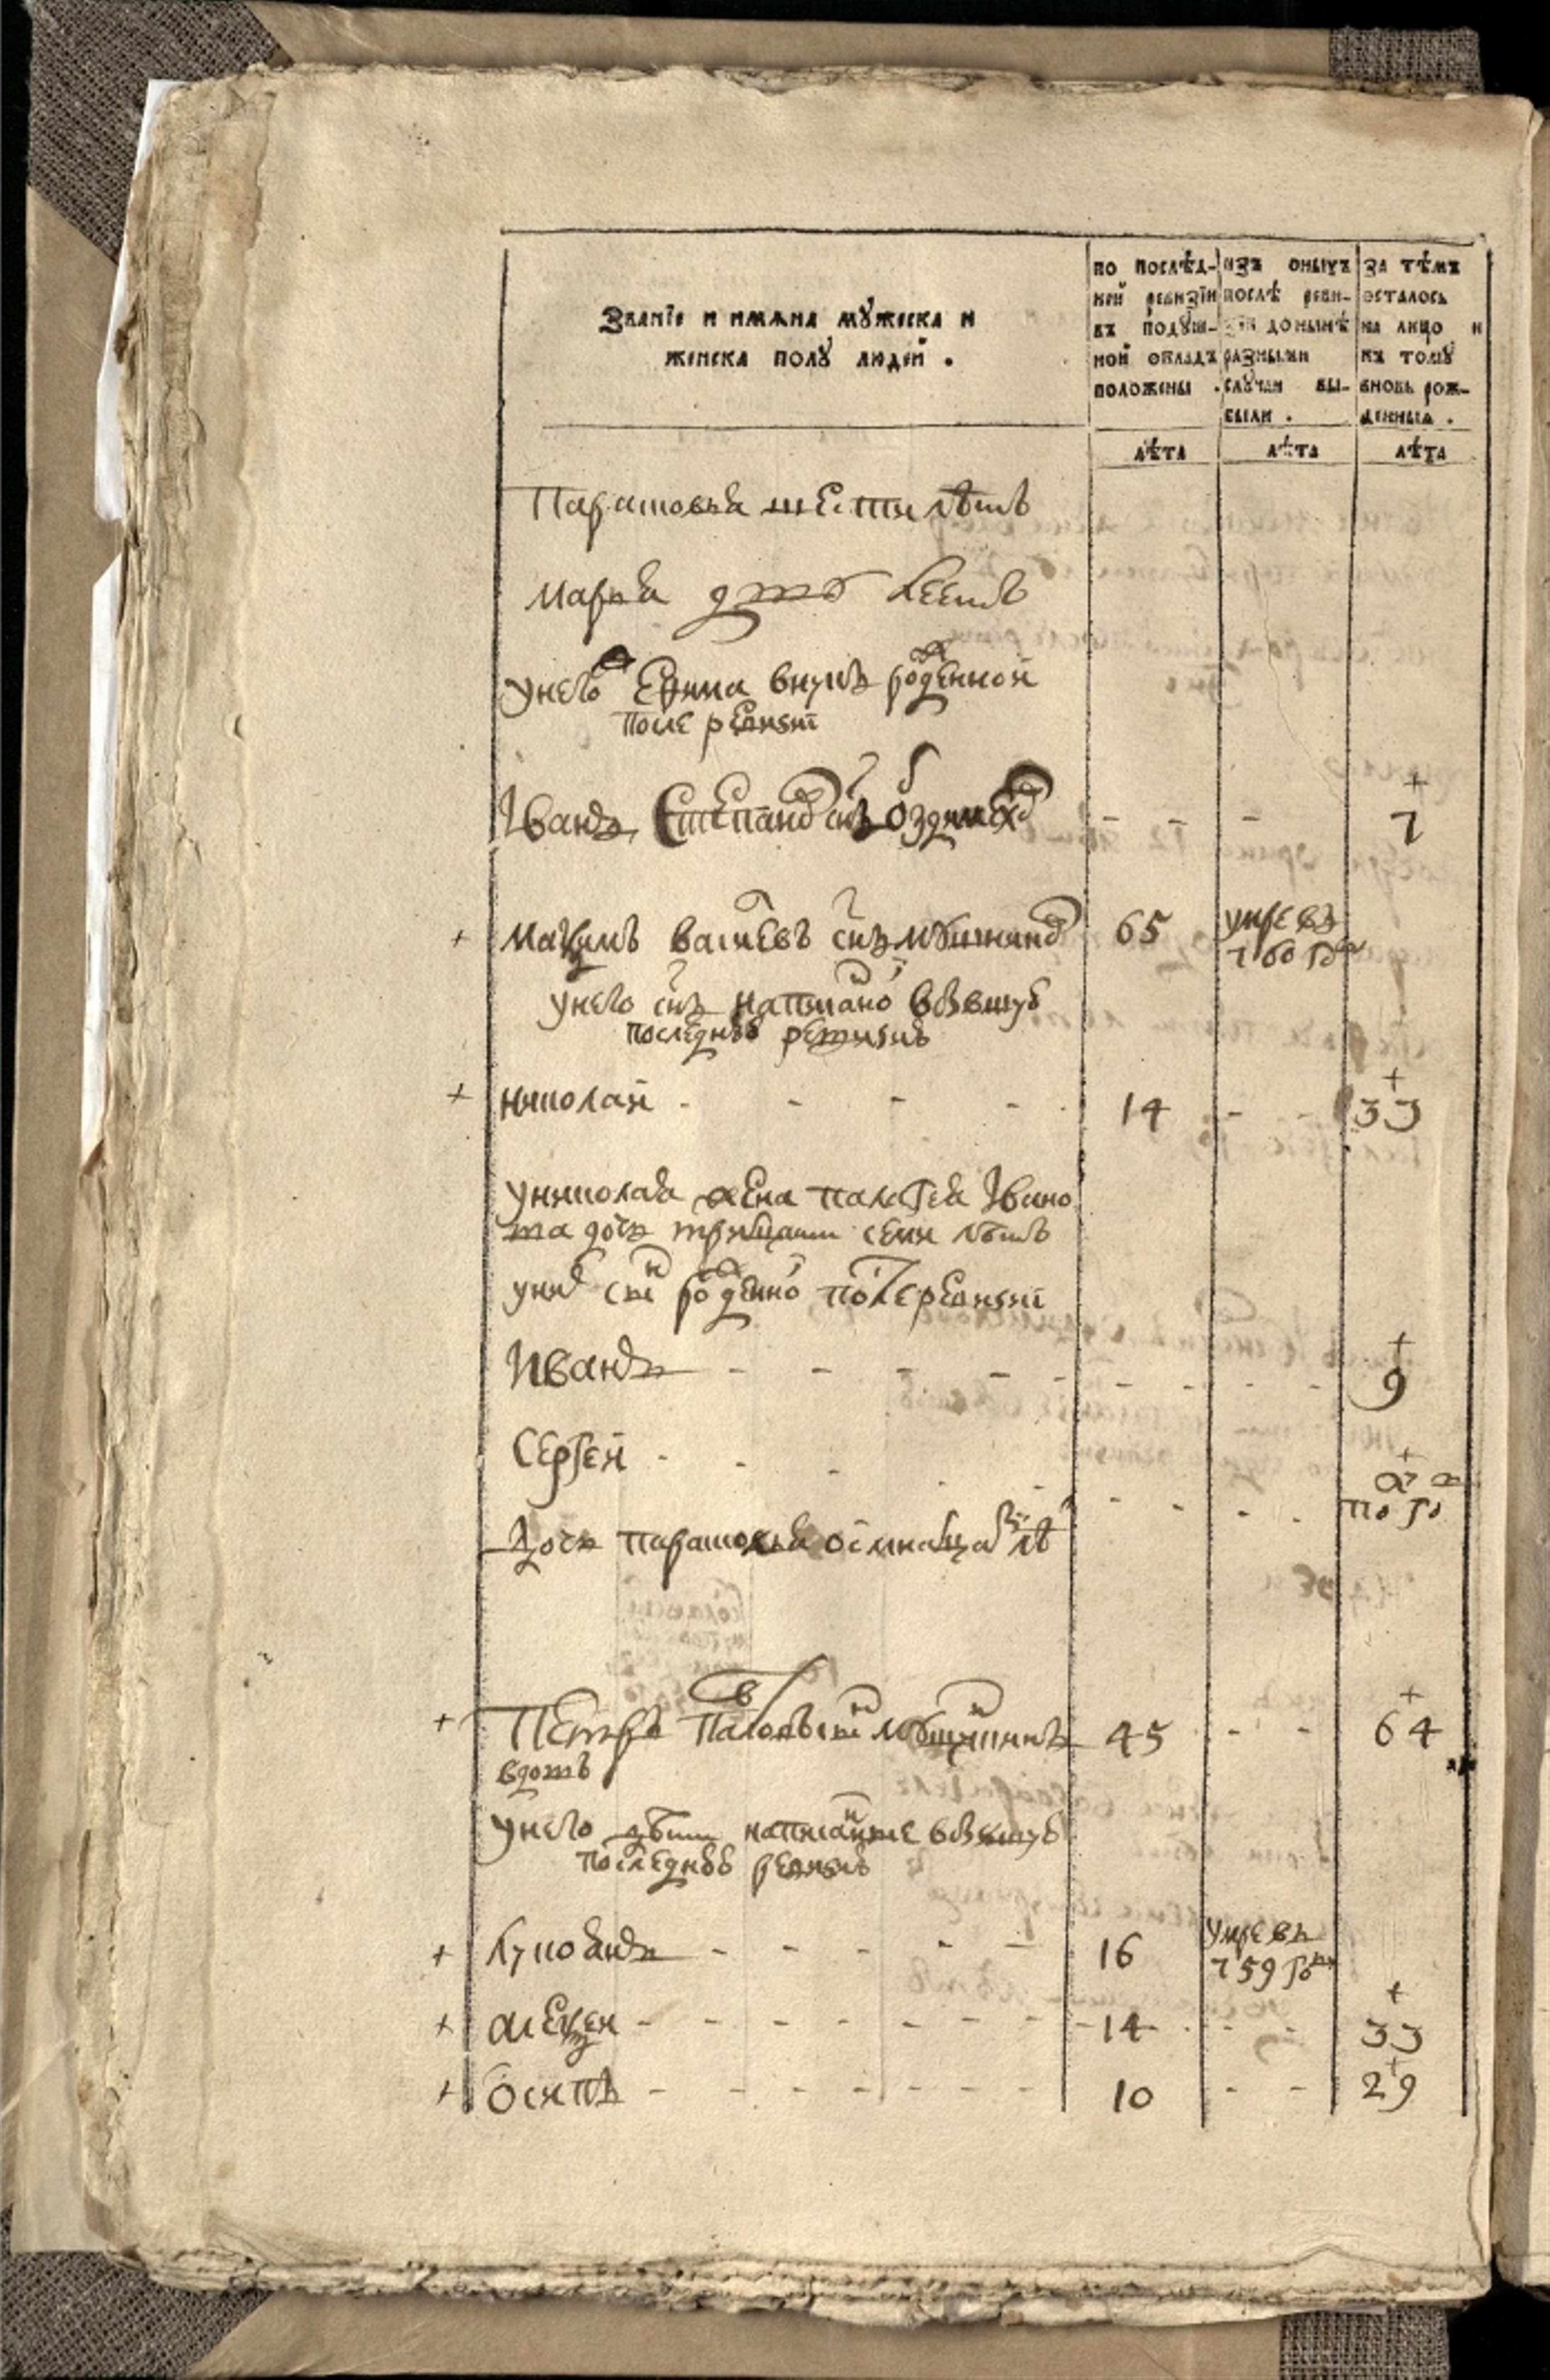 Званїе и имяна мꙋжеска и
женеска полꙋ людей .
по послѣд-
ней ревизїи
въ подуш-
ной окладъ
положены .
изъ оныхъ
послѣ реви-
зїи донынѣ
разными
случаи вы-
были .
за тѣмъ
осталось
на лицо и
къ томꙋ
вновь рож-
денныя .
лѣта лѣта лѣта
Парасковья шести лѣтъ
Марья летъ
унего Ефима внукъ рожденной
после ревизїи
Іванъ Степановъ снъ - - - 7
Маѯимъ васильевъ снъ 65 умре въ
760 году
унего снъ написаной въбывшую
последнюю ревизию
николай - - - - 14 - - 33
униколая жена палагея Івано
ва дочь тритцати семи лѣтъ
уних сн рожденно послеревизиї
Иванъ - - - - - - - - 9
Сергей - - - - - - - -
по го
Дочь парасковья осмнатцати лѣ
Петръ Павловъ снъ 45 - - 64
вдовъ
Унего дѣти написанные въбывшую
последнюю ревизию
лукоянъ - - - - - 16 умре въ
759 году
алеѯей - - - - - - - 14 - - 33
осипъ - - - - - - - 10 - - 29